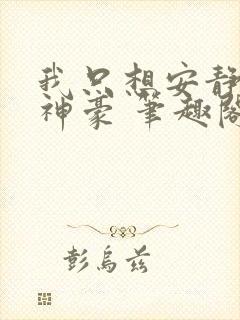 我只想安静
神豪 笔趣阁
彭乌兹